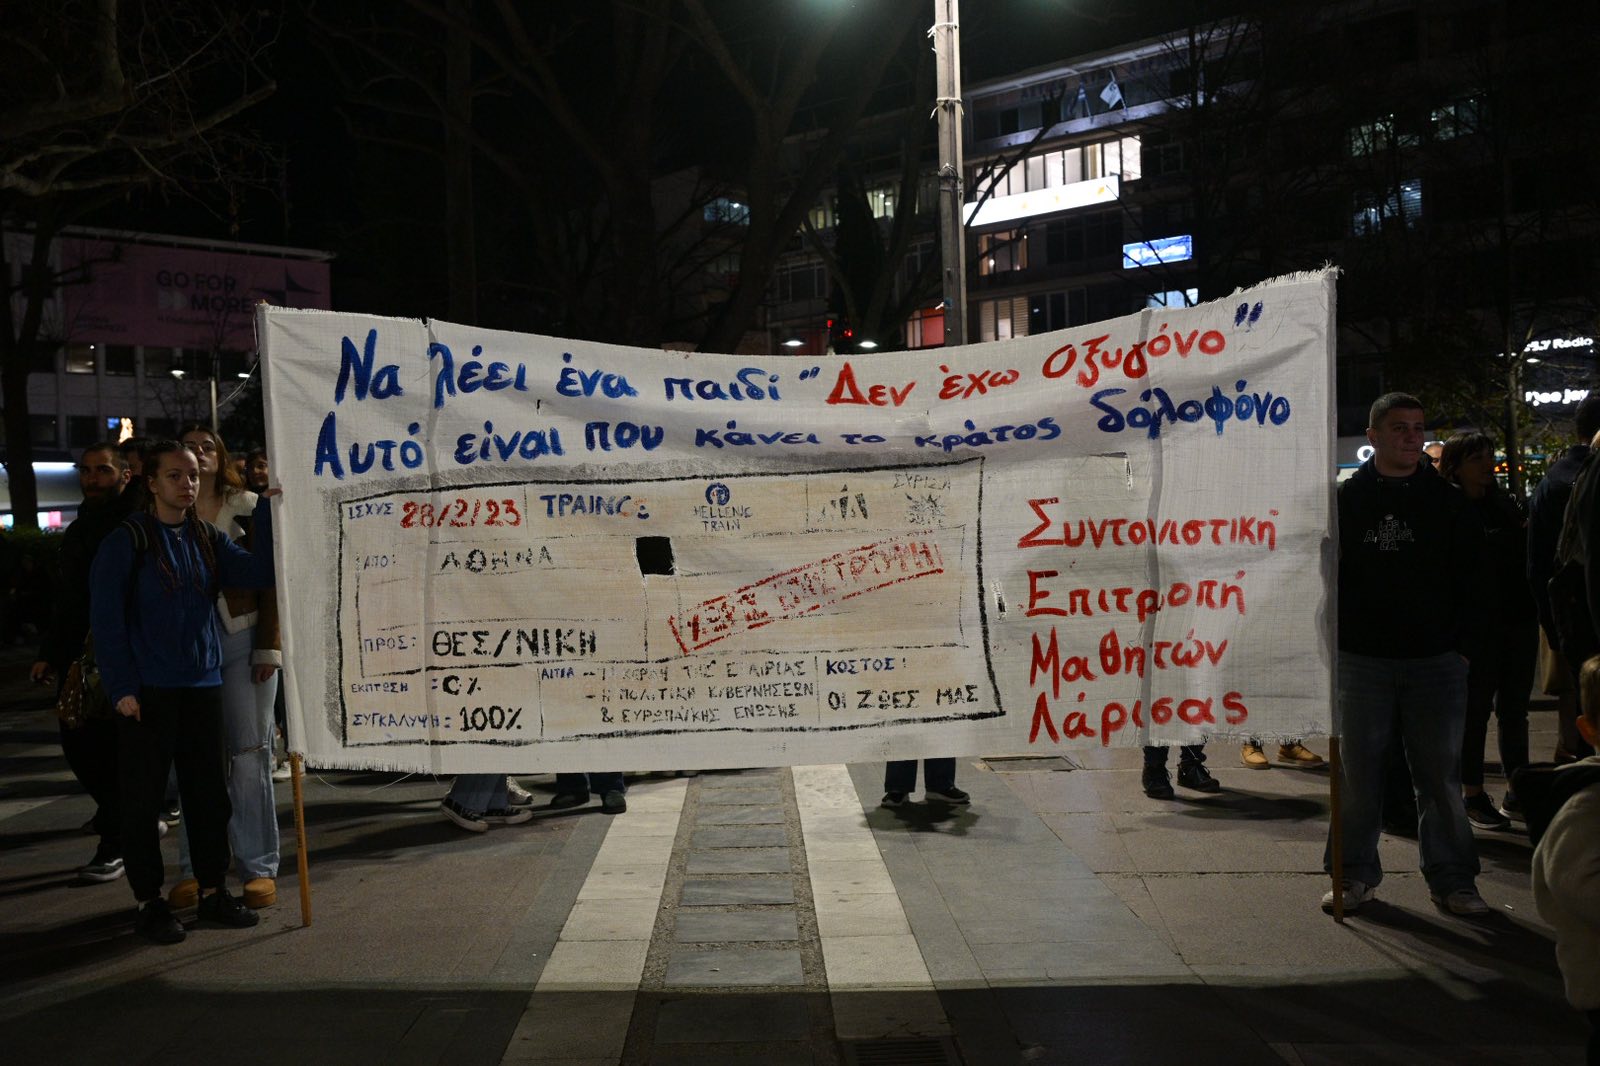 Να λέει ένα παιδί "Δεν έχω οξυγόνο"
Αυτό είναι που κάνει το κράτος δολοφόνο
ΙΣΧΥΣ 28/2/23 ΤΡΑΙΝΟ:
HELLENIC
TRAIN
ΣΥΡΙΖΑ
ΑΠΟ: ΑΘΗΝΑ
ΧΩΡΙΣ ΕΠΙΣΤΡΟΦΗ
ΠΡΟΣ: ΘΕΣ/ΝΙΚΗ
ΕΚΠΤΩΣΗ : 0%
ΣΥΓΚΑΛΥΨΗ: 100%
ΑΙΤΙΑ - ΤΑ ΚΕΡΔΗ ΤΗΣ ΕΤΑΙΡΙΑΣ
- Η ΠΟΛΙΤΙΚΗ ΚΥΒΕΡΝΗΣΕΩΝ
& ΕΥΡΩΠΑΪΚΗΣ ΕΝΩΣΗΣ
ΚΟΣΤΟΣ:
ΟΙ ΖΩΕΣ ΜΑΣ
Συντονιστική
Επιτροπή
Μαθητών
Λάρισας
GO FOR
MORE
LOS
ANGELES
CA.
Radio